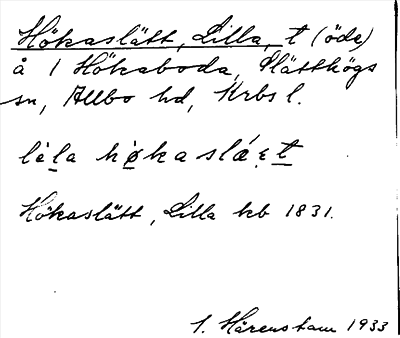 Hökaslätt, Lilla, t (öde)
å 1 Hökaboda, Slätthögs
sn, Allbo hd, Krbs l.
lìla hø̀kaslǽt
Hökaslätt, Lilla kb 1831.
I. Härenstam 1933